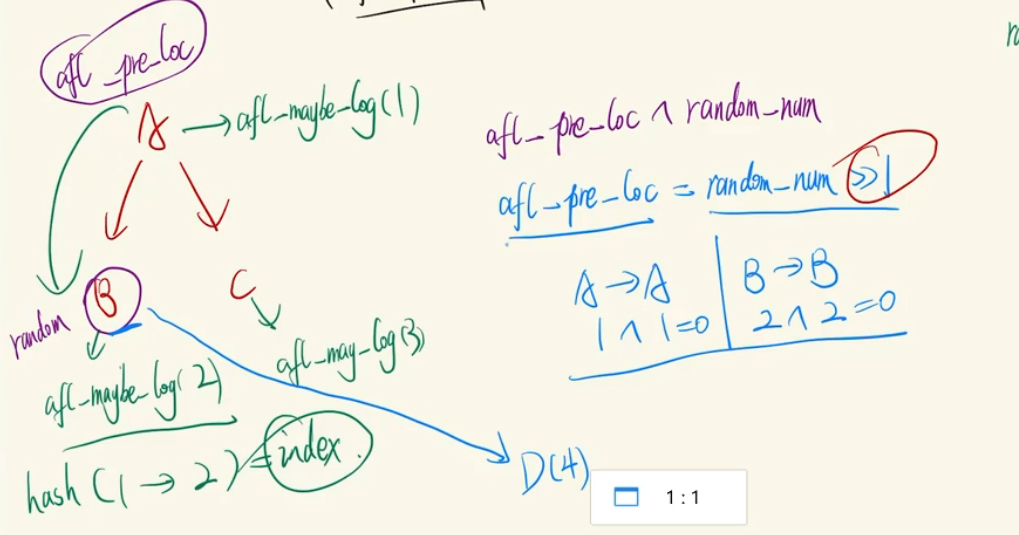 afl_pre_loc
A → afl_maybe_log(1)
B
C
random
afl_maybe_log(2)
afl_may_log(3)
hash(1 → 2) = index.
D(4)
afl_pre_loc ∧ random_num
afl_pre_loc = random_num >>1
A → A
1 ∧ 1=0
B → B
2 ∧ 2 =0
1 : 1